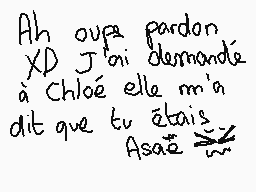 Ah oups pardon
XD J'ai demandé
à Chloé elle m'a
dit que tu étais
Asaë